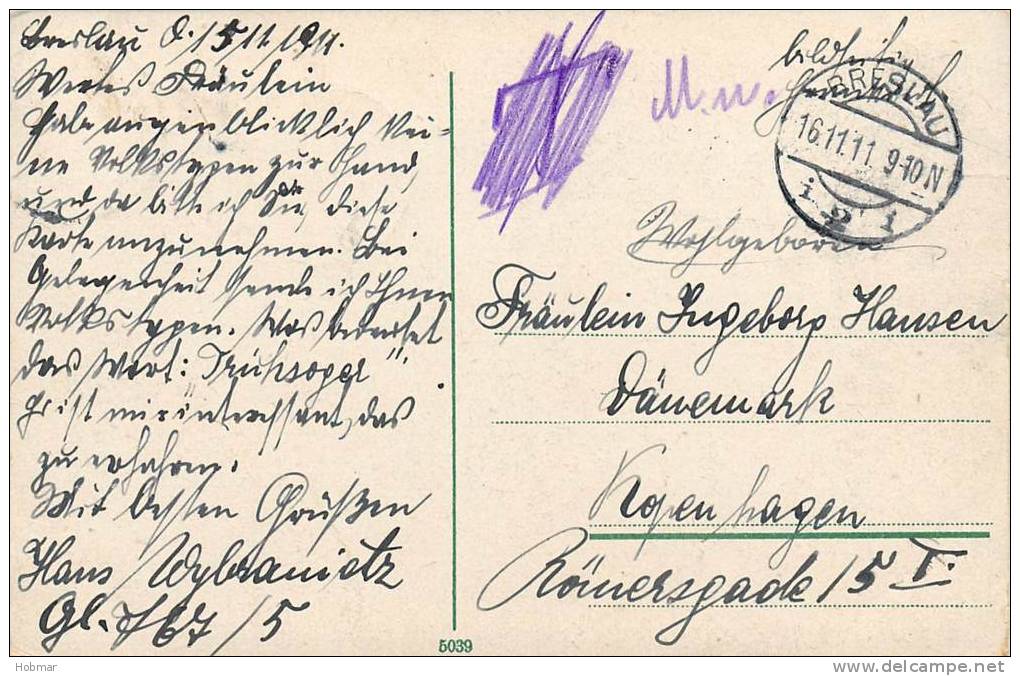 Breslau d. 15 11. 1911.
Wertes Fräulein
Habe augenblicklich kei-
ne Volkstypen zur Hand,
und da bitte ich Sie, diese
Karte anzunehmen. Bei
Gelegenheit sende ich Ihnen
Volkstypen. Was bedeutet
das Wort:
ist mir interessant, das
zu erfahren.
Mit besten Grüßen
Hans Wybranietz
M. w.
BRESLAU
16.11.11. 9-10N
1
Wohlgeboren
Fräulein Ingeborg Hansen
Dänemark
Kopenhagen
Römersgade 15 I.
5039
Hobmar
delcampe.net